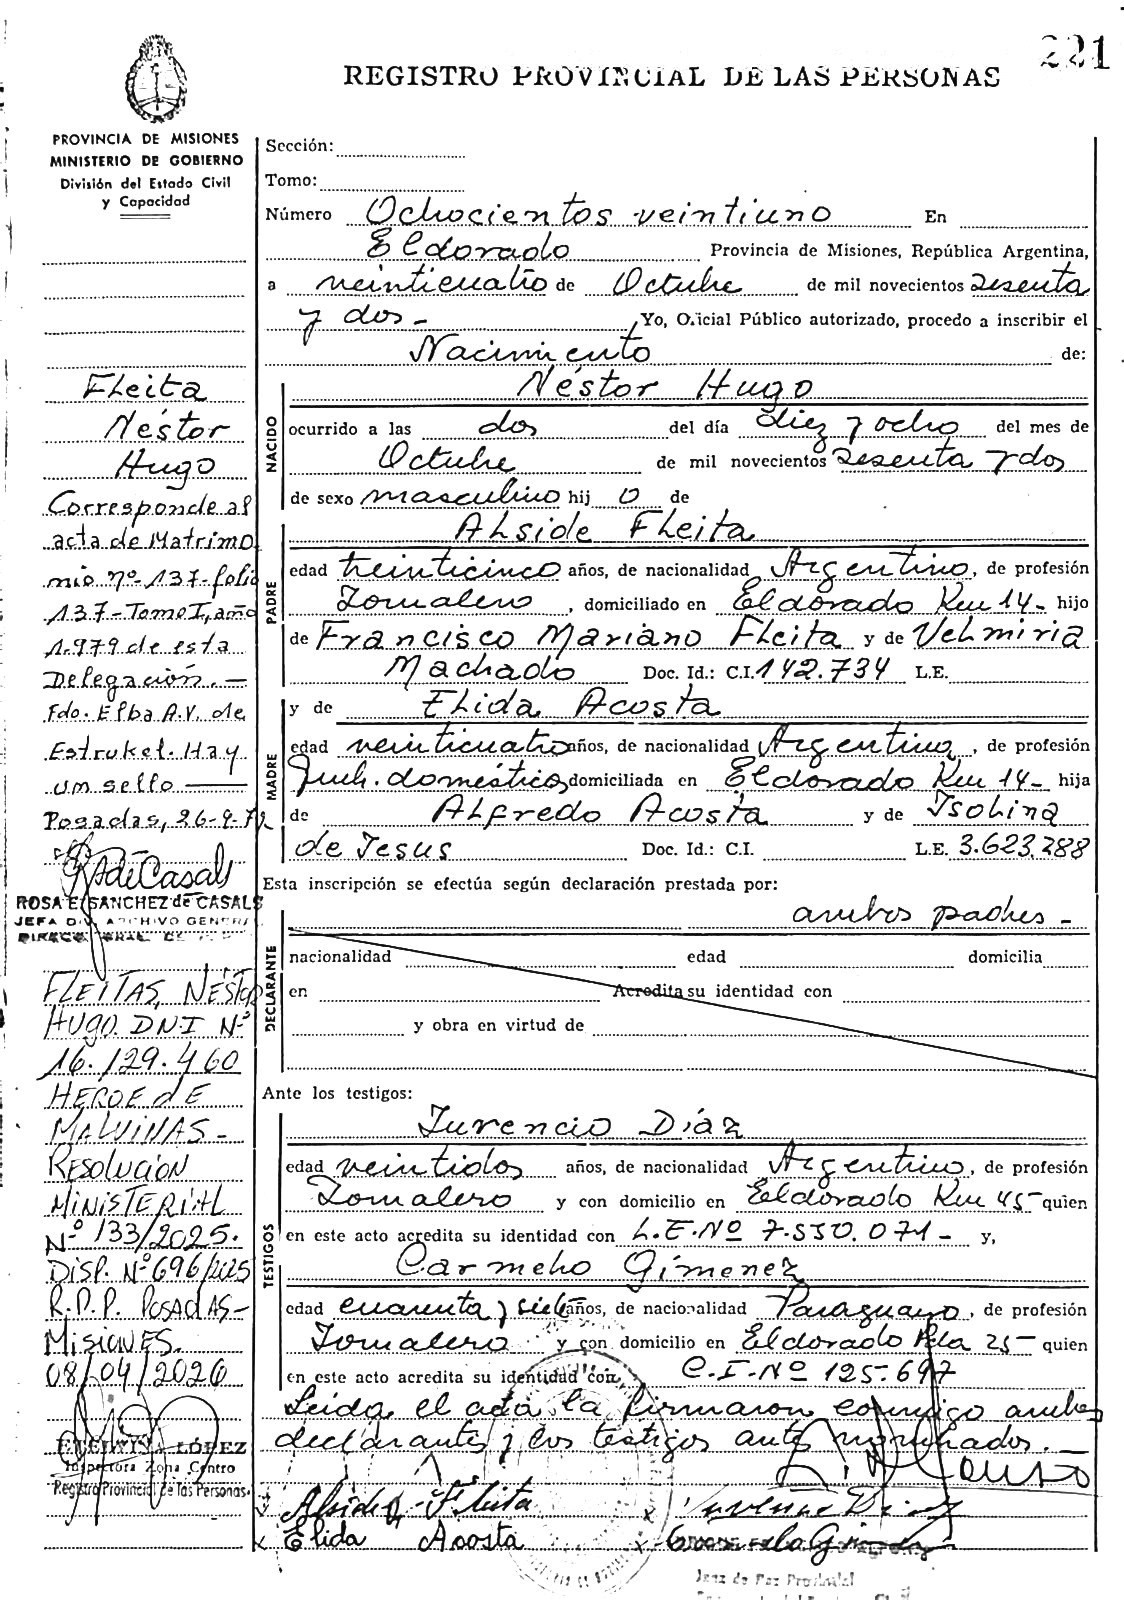 221
REGISTRO PROVINCIAL DE LAS PERSONAS
PROVINCIA DE MISIONES
MINISTERIO DE GOBIERNO
División del Estado Civil
y Capacidad
Fleita
Néstor
Hugo
Corresponde al
acta de Matrimo
nio nº-137-folio
137-Tomo I, año
1.979 de esta
Delegación.-
Fdo. Elba A.V. de
Estrukel. Hay
un sello
Posadas, 26-9-79
ROSA E. SANCHEZ de CASALS
JEFA DIV. ARCHIVO GENERAL
FLEITAS, NÉSTOR
HUGO. DN.I Nº
16.129.460
HEROE dE
MALVINAS-
RESOLUCIÓN
MINISTERIAL
Nº 133/2025.
DISP. Nº 696/2025
R.P.P. POSADAS-
MISIONES.
08/04/2026
LÓPEZ
Inspectora Zona Centro
Registro Provincial de las Personas
Sección:
Tomo:
Número Ochocientos veintiuno En
Eldorado Provincia de Misiones, República Argentina,
a veinticuatro de Octubre de mil novecientos sesenta
y dos- , Yo, Oficial Público autorizado, procedo a inscribir el
Nacimiento de:
NACIDO
Néstor Hugo
ocurrido a las dos del día diez y ocho del mes de
Octubre de mil novecientos sesenta y dos
de sexo masculino hij o de
PADRE
Alside Fleita
edad treinticinco años, de nacionalidad Argentino, de profesión
Jornalero, domiciliado en Eldorado Km 14- hijo
de Francisco Mariano Fleita y de Velmiria
Machado Doc. Id.: C.I. 142.734 L.E.
MADRE
y de Elida Acosta
edad veinticuatro años, de nacionalidad Argentina, de profesión
Queh. doméstico, domiciliada en Eldorado Km 14- hija
de Alfredo Acosta y de Isolina
de Jesus Doc. Id.: C.I. L.E. 3.623.288
Esta inscripción se efectúa según declaración prestada por:
DECLARANTE
ambos padres-
nacionalidad edad domicilia
en Acredita su identidad con
y obra en virtud de
Ante los testigos:
TESTIGOS
Juvencio Díaz
edad veintidos años, de nacionalidad Argentino, de profesión
Jornalero y con domicilio en Eldorado Km 45- quien
en este acto acredita su identidad con L.E.Nº 7.550.071- y,
Carmelo Gimenez
edad cuarenta y siete años, de nacionalidad Paraguayo, de profesión
Jornalero y con domicilio en Eldorado Pda 25- quien
en este acto acredita su identidad con C.I-Nº 125-697
Leida el acta la firmaron conmigo ambos
declarantes y los testigos antes nombrados.-
Alside Fleita x Juvencio Diaz
x Elida Acosta x
Juez de Paz Provincial